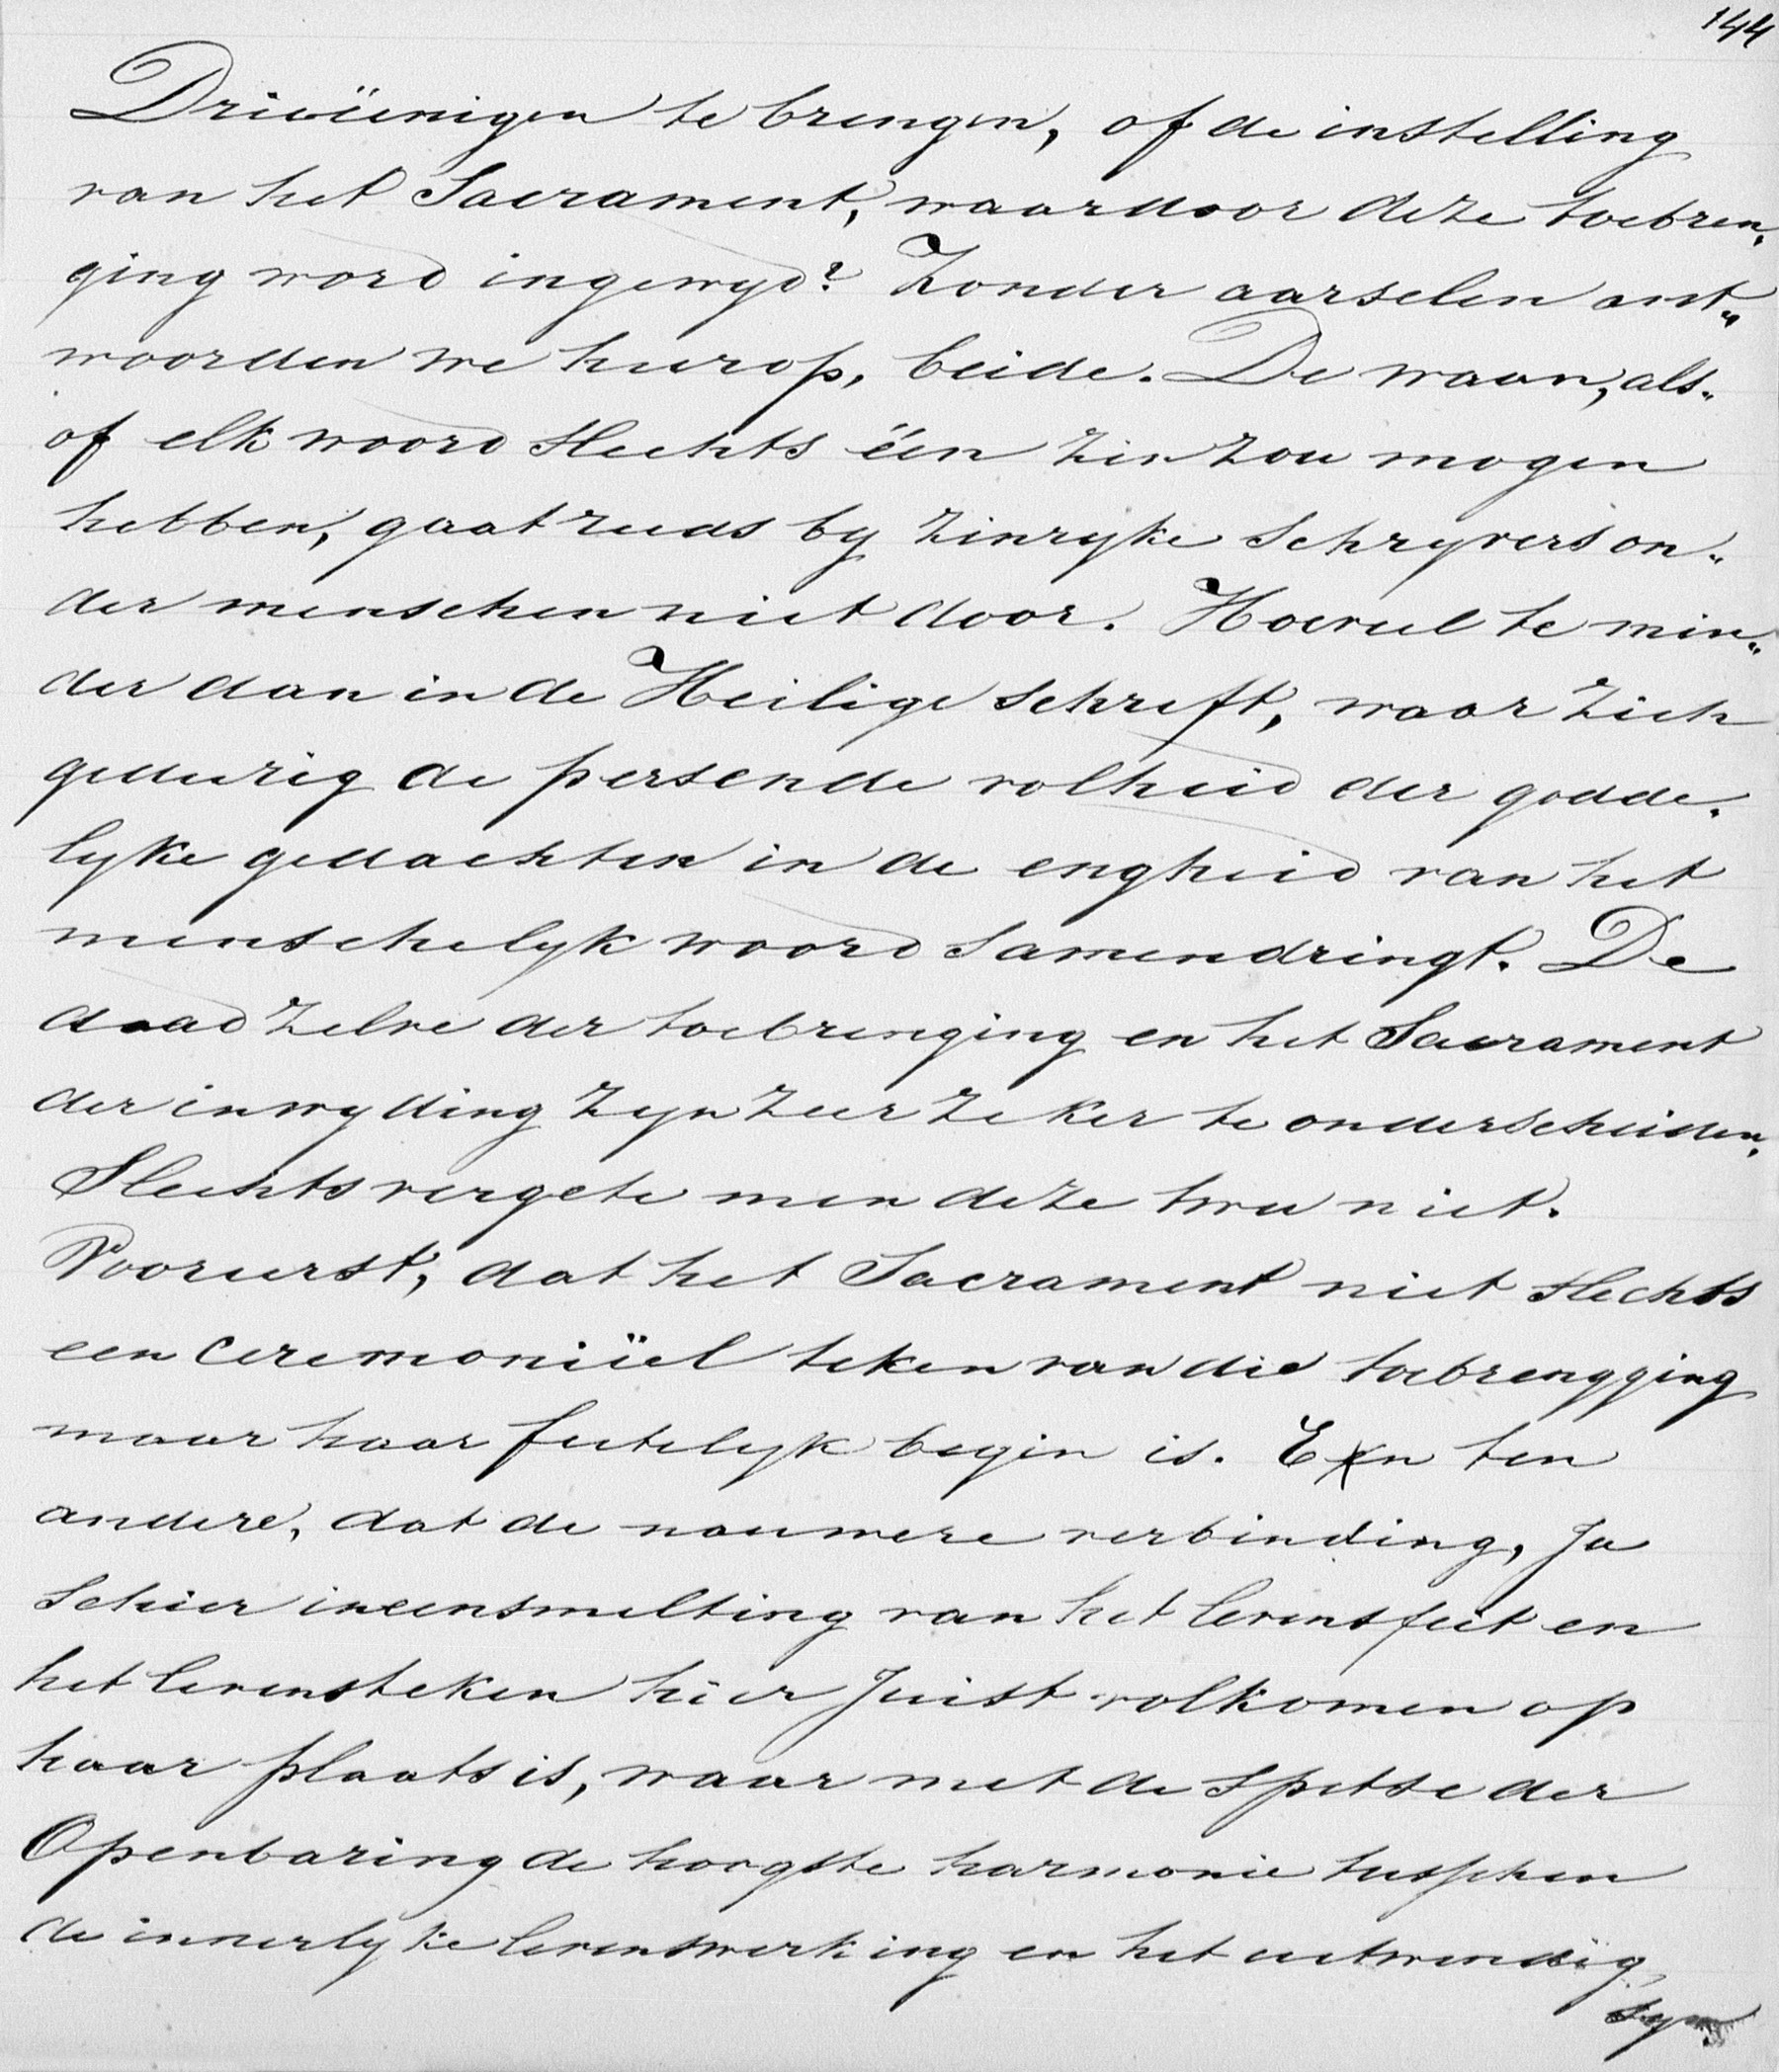 144
Drieëenigen te brengen, of de instelling
van het Sacrament, waardoor deze toebren„
ging word ingewyd? Zonder aarselen ant„
woorden we hierop, beide. De waan, als„
of elk woord slechts één zin zou mogen
hebben, gaat reeds by zinryke schryvers on„
der menschen niet door. Hoeveel te min„
der dan in de Heilige schrift, waar zich
gedurig de persende volheid der godde„
lyke gedachten in de engheid van het
menschelyk woord samendringt. De
daad zelve der toebrenging en het Sacrament
der inwyding zyn zeer zeker te onderscheiden.
Slechts vergete men deze twee niet.
Vooreerst, dat het Sacrament niet slechts
een ceremoniëel teken van die toebrengging
maar haar feitelyk begin is. En ten
andere, dat de nauwere verbinding, ja
schier ineensmelting van het levensfeit en
het levensteken hier juist volkomen op
haar plaats is, waar met de spetse der
Openbaring de hoogste harmonie tusschen
de innerlyke levenswerking en het uitwendig